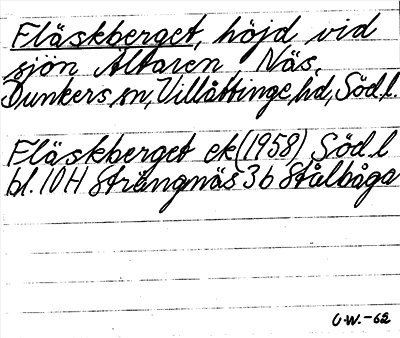 Fläskberget, höjd vid
sjön Ältaren, Näs,
Dunkers sn, Villåttinge hd, Söd.l.
Fläskberget ek (1958) Söd.l
bl. 10H Strängnäs 3b Stålbåga
O.W.-62